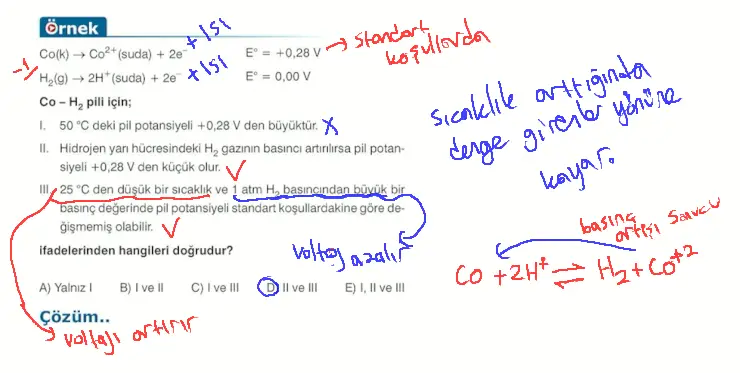 Örnek
Co(k) → Co²⁺(suda) + 2e⁻ +ısı E° = +0,28 V → standart koşullarda
-1/ H₂(g) → 2H⁺(suda) + 2e⁻ +ısı E° = 0,00 V
Co – H₂ pili için;
I. 50 °C deki pil potansiyeli +0,28 V den büyüktür. X
II. Hidrojen yarı hücresindeki H₂ gazının basıncı artırılırsa pil potan-
siyeli +0,28 V den küçük olur. ✓
III. 25 °C den düşük bir sıcaklık ve 1 atm H₂ basıncından büyük bir
basınç değerinde pil potansiyeli standart koşullardakine göre de-
ğişmemiş olabilir. ✓
ifadelerinden hangileri doğrudur?
A) Yalnız I B) I ve II C) I ve III D) II ve III E) I, II ve III
Çözüm..
voltajı artırır
voltaj azalır
sıcaklık arttığında
denge girenler yönüne
kayar.
basınç
artışı sonucu
Co + 2H⁺ ⇌ H₂ + Co⁺²